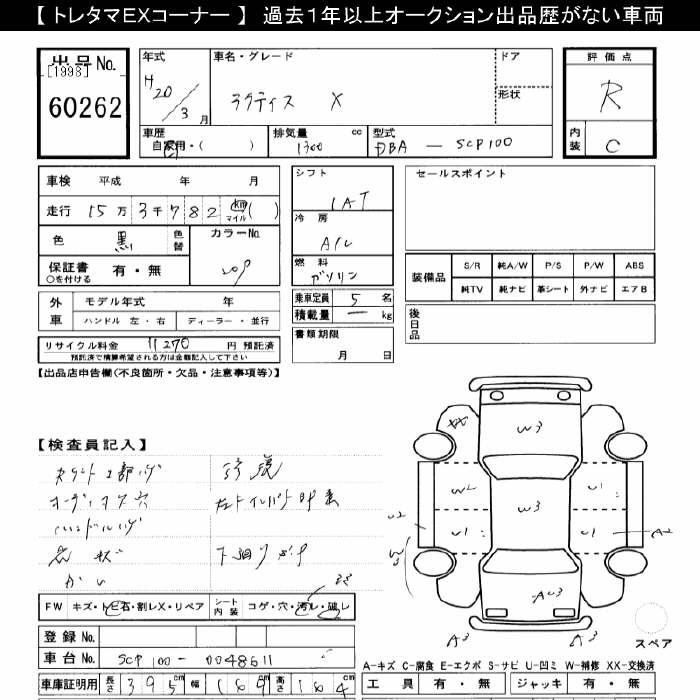 【 トレタマEXコーナー 】 過去１年以上オークション出品歴がない車両
出品No.
[1998]
60262
年式
H20/3月
車名・グレード
ラクティス X
ドア
形状
評価点
R
内装
C
車歴
自家用・( )
排気量 cc
1300
型式
DBA — SCP100
車検 平成 年 月
走行 15万3千782 km マイル ( )
色 黒
色替
カラーNo.
209
保証書 有・無
○を付ける
外車
モデル年式 年
ハンドル 左・右
ディーラー・並行
リサイクル料金 11270 円 預託済
預託済で積算希望される方は金額記入して下さい
シフト
IAT
冷房
A/C
燃料
ガソリン
乗車定員 5 名
積載量 — kg
書類期限
月 日
セールスポイント
装備品
S/R 純A/W P/S P/W ABS
純TV 純ナビ 革シート 外ナビ エアB
後日品
【出品店申告欄(不良箇所・欠品・注意事項等)】
【検査員記入】
修復
オーディオ 穴
ハンドル
下廻り
FW キズ・トビ石・割レX・リペア
シート内装 コゲ・穴・汚レ・破レ
W3
W2
U1
W3
U1
U1
A2
AU3
A3
A3
スペア
登録No.
車台No. SCP100-0048611
車庫証明用 長さ 395cm 幅 169cm 高さ 164cm
A-キズ C-腐食 E-エクボ S-サビ U-凹ミ W-補修 XX-交換済
工具 有・無 ジャッキ 有・無